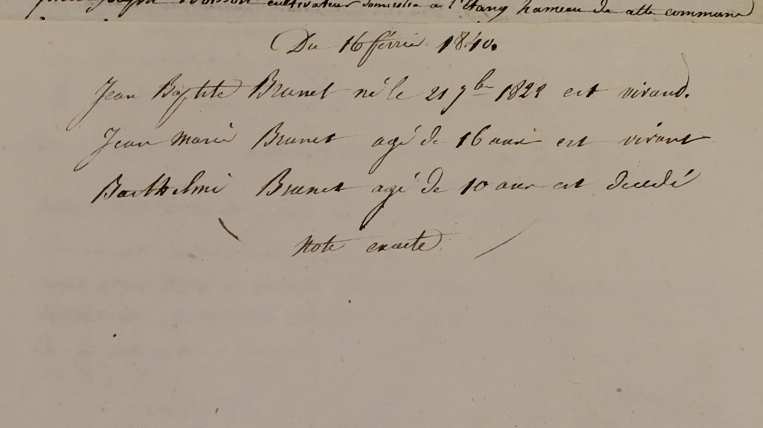 cultivateur domicilié à l'Etang hameau de cette commune
Du 16 février 1840.
Jean Baptite Brunet né le 21 7bre 1822 est vivand.
Jean Marie Brunet agé de 16 ans est vivant
Barthelmi Brunet agé de 10 ans est decedé
Note exacte